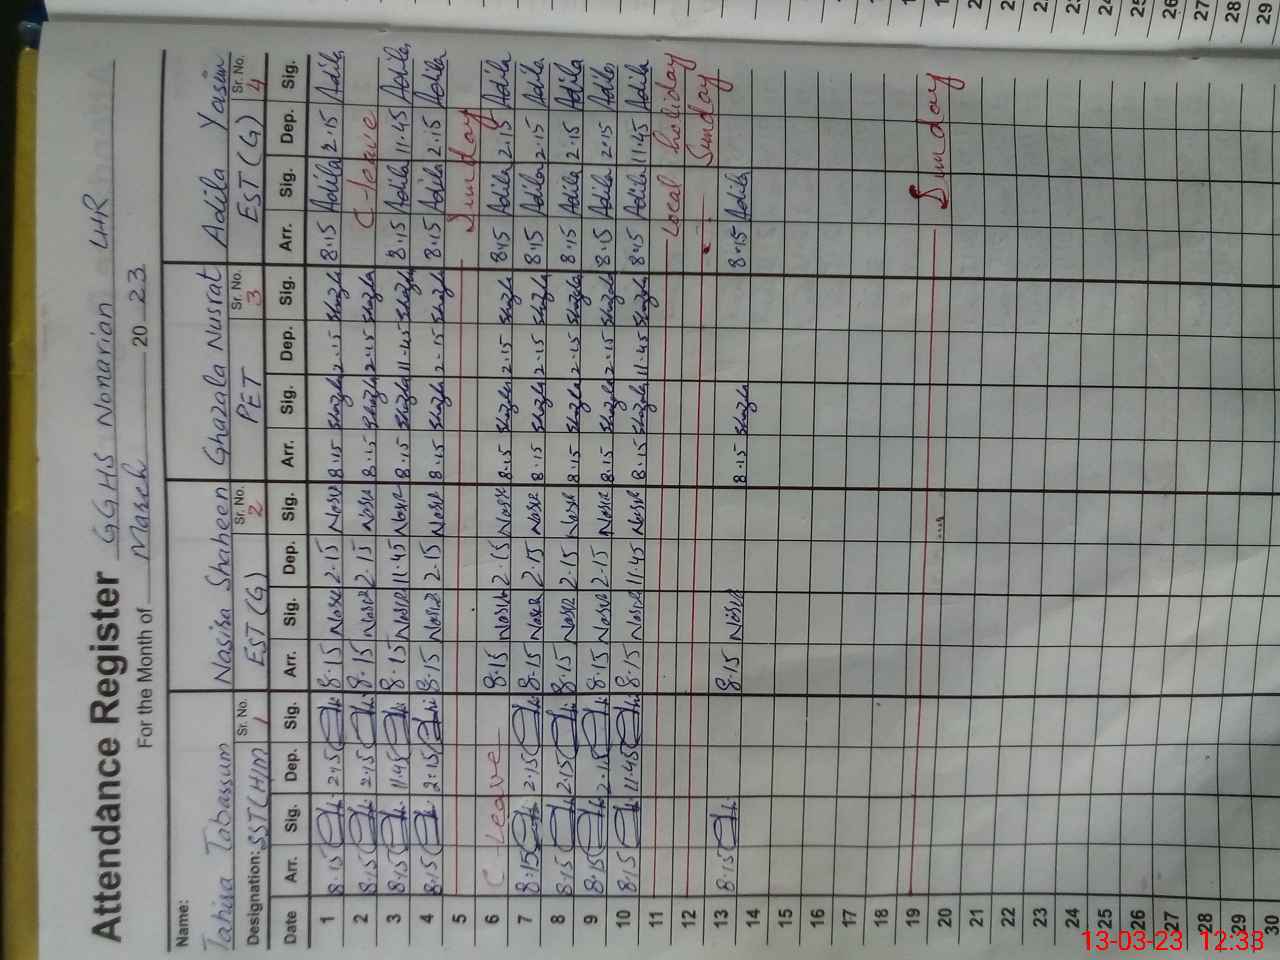 Attendance Register GGHS Nonarian LHR
For the Month of March 20 23
Name: Tahira Tabassum Nasira Shaheen Ghazala Nusrat Adila Yasin
Designation: SST(H/M) Sr. No. 1 EST (G) Sr. No. 2 PET Sr. No. 3 EST (G) Sr. No. 4
Date Arr. Sig. Dep. Sig. Arr. Sig. Dep. Sig. Arr. Sig. Dep. Sig. Arr. Sig. Dep. Sig.
1 8.15 2.15 8.15 Nasir 2.15 Nasir 8.15 2.15 8.15 Adila 2.15 Adila
2 8.15 2.15 8.15 Nasir 2.15 Nasir 8.15 2.15 C-leave
3 8.15 11.45 8.15 Nasir 11.45 Nasir 8.15 11.45 8.15 Adila 11.45 Adila
4 8.15 2.15 8.15 Nasir 2.15 Nasir 8.15 2.15 8.15 Adila 2.15 Adila
5 Sunday
6 C-leave 8.15 Nasir 2.15 Nasir 8.15 2.15 8.15 Adila 2.15 Adila
7 8.15 2.15 8.15 Nasir 2.15 Nasir 8.15 2.15 8.15 Adila 2.15 Adila
8 8.15 2.15 8.15 Nasir 2.15 Nasir 8.15 2.15 8.15 Adila 2.15 Adila
9 8.15 2.15 8.15 Nasir 2.15 Nasir 8.15 2.15 8.15 Adila 2.15 Adila
10 8.15 11.45 8.15 Nasir 11.45 Nasir 8.15 11.45 8.15 Adila 11.45 Adila
11 Local holiday
12 Sunday
13 8.15 8.15 Nasir 8.15 8.15 Adila
14
15
16
17
18
19 Sunday
20
21
22
23
24
25
26
27
28
29
30
13-03-23 12:33